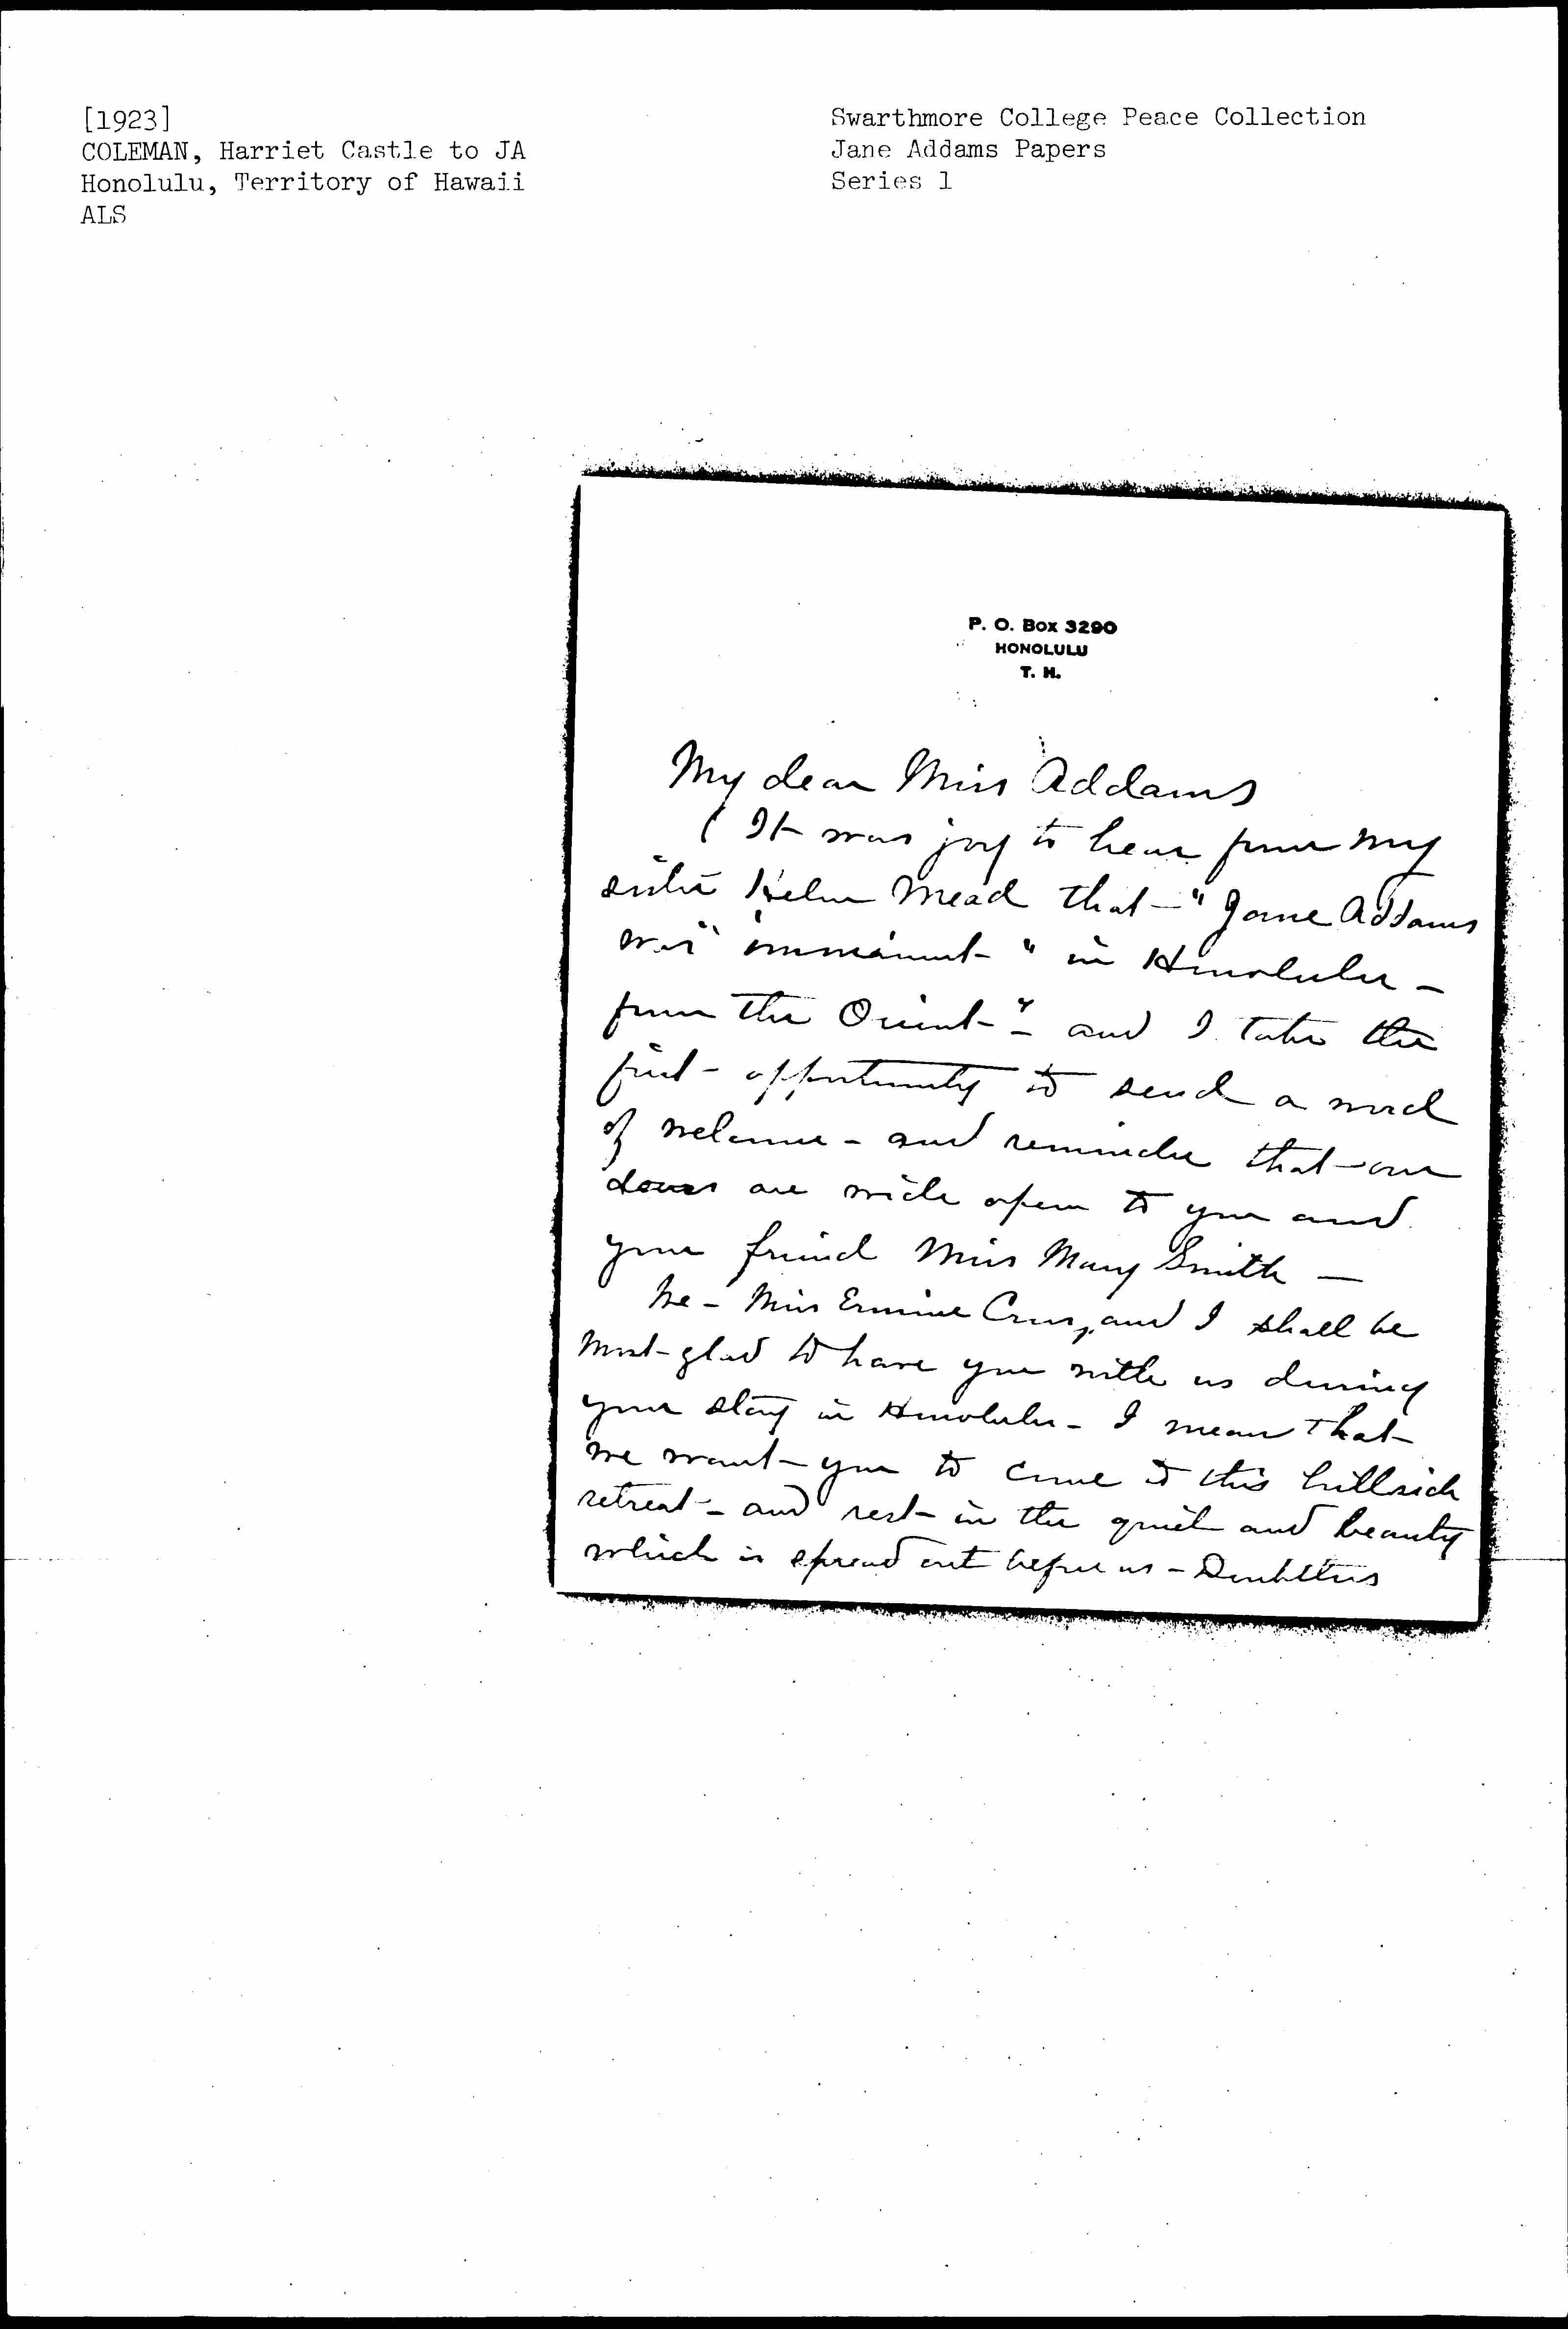 [1923]
COLEMAN, Harriet Castle to JA
Honolulu, Territory of Hawaii
ALS
Swarthmore College Peace Collection
Jane Addams Papers
Series 1
P. O. Box 3290
HONOLULU
T. H.
My dear Miss Addams
It was joy to hear from my
sister Helen Mead that - "Jane Addams
was "imminent" in Honolulu -
from the Orient" - and I take the
first - opportunity to send a word
of welcome - and reminder that - our
doors are wide open to you and
your friend Miss Mary Smith —
We - Miss Ermine Cross, and I shall be
most glad to have you with us during
your stay in Honolulu - I mean that
we want you to come to this hillside
retreat - and rest in the quiet and beauty
which is spread out before us - Doubtless